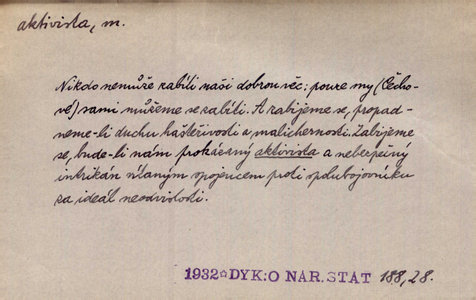 aktivista, m.
Nikdo nemůže zabíti naši dobrou věc; pouze my (Čecho-
vé) sami můžeme se zabíti. A zabijeme se, propad-
neme-li duchu hašteřivosti a malichernosti. Zabijeme
se, bude-li nám prokázaný aktivista a nebezpečný
intrikán vítaným spojencem proti spolubojovníku
za ideál neodvislosti.
1932 DYK: O NÁR. STÁT 188,28.